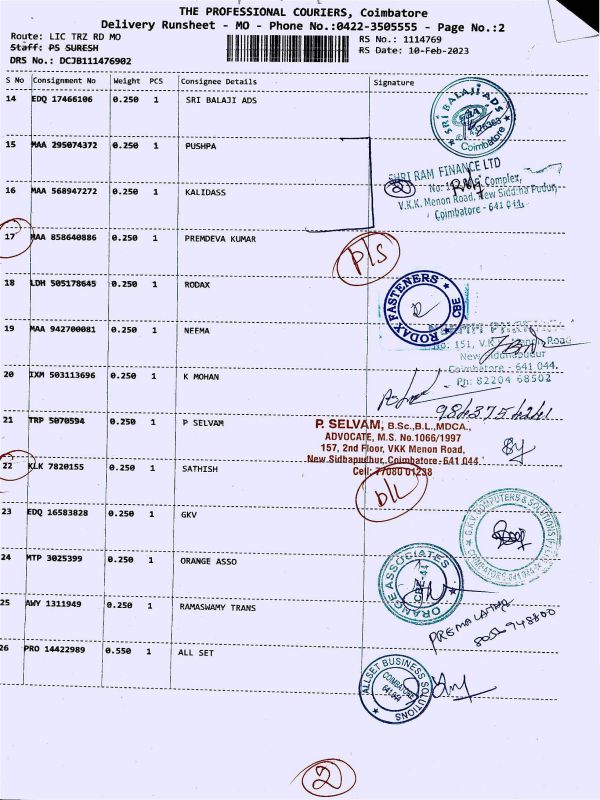 THE PROFESSIONAL COURIERS, Coimbatore
Delivery Runsheet - MO - Phone No.:0422-3505555 - Page No.:2
Route: LIC TRZ RD MO
RS No.: 1114769
Staff: PS SURESH
RS Date: 10-Feb-2023
DRS No.: DCJB111476902
S No Consignment No Weight PCS Consignee Details Signature
14 EDQ 17466106 0.250 1 SRI BALAJI ADS
SRI BALAJI ADS
Coimbatore
15 MAA 295074372 0.250 1 PUSHPA
SHRI RAM FINANCE LTD
Complex,
16 MAA 568947272 0.250 1 KALIDASS
V.K.K. Menon Road, New Siddha Pudur,
Coimbatore - 641 044.
17 MAA 858640886 0.250 1 PREMDEVA KUMAR
18 LDH 505178645 0.250 1 RODAX
RODAX FASTENERS CBE
19 MAA 942700081 0.250 1 NEEMA
No: 151, V.K.K. Menon Road
New Siddhapudur
Coimbatore - 641 044.
Ph: 82204 68502
20 IXM 503113696 0.250 1 K MOHAN
21 TRP 5070594 0.250 1 P SELVAM
P. SELVAM, B.Sc.,B.L.,MDCA.,
ADVOCATE, M.S. No.1066/1997
157, 2nd Floor, VKK Menon Road,
New Sidbapudhur, Coimbatore-641 044
Cell: 77080 01238
22 KLK 7820155 0.250 1 SATHISH
23 EDQ 16583828 0.250 1 GKV
G.K.V. COMPUTERS & SOLUTIONS (P) LTD
COIMBATORE-641 044
24 MTP 3025399 0.250 1 ORANGE ASSO
ORANGE ASSOCIATES
CBE-44
25 AWY 1311949 0.250 1 RAMASWAMY TRANS
PREMALATHA
26 PRO 14422989 0.550 1 ALL SET
ALLSET BUSINESS SOLUTIONS
COIMBATORE
641 044
2